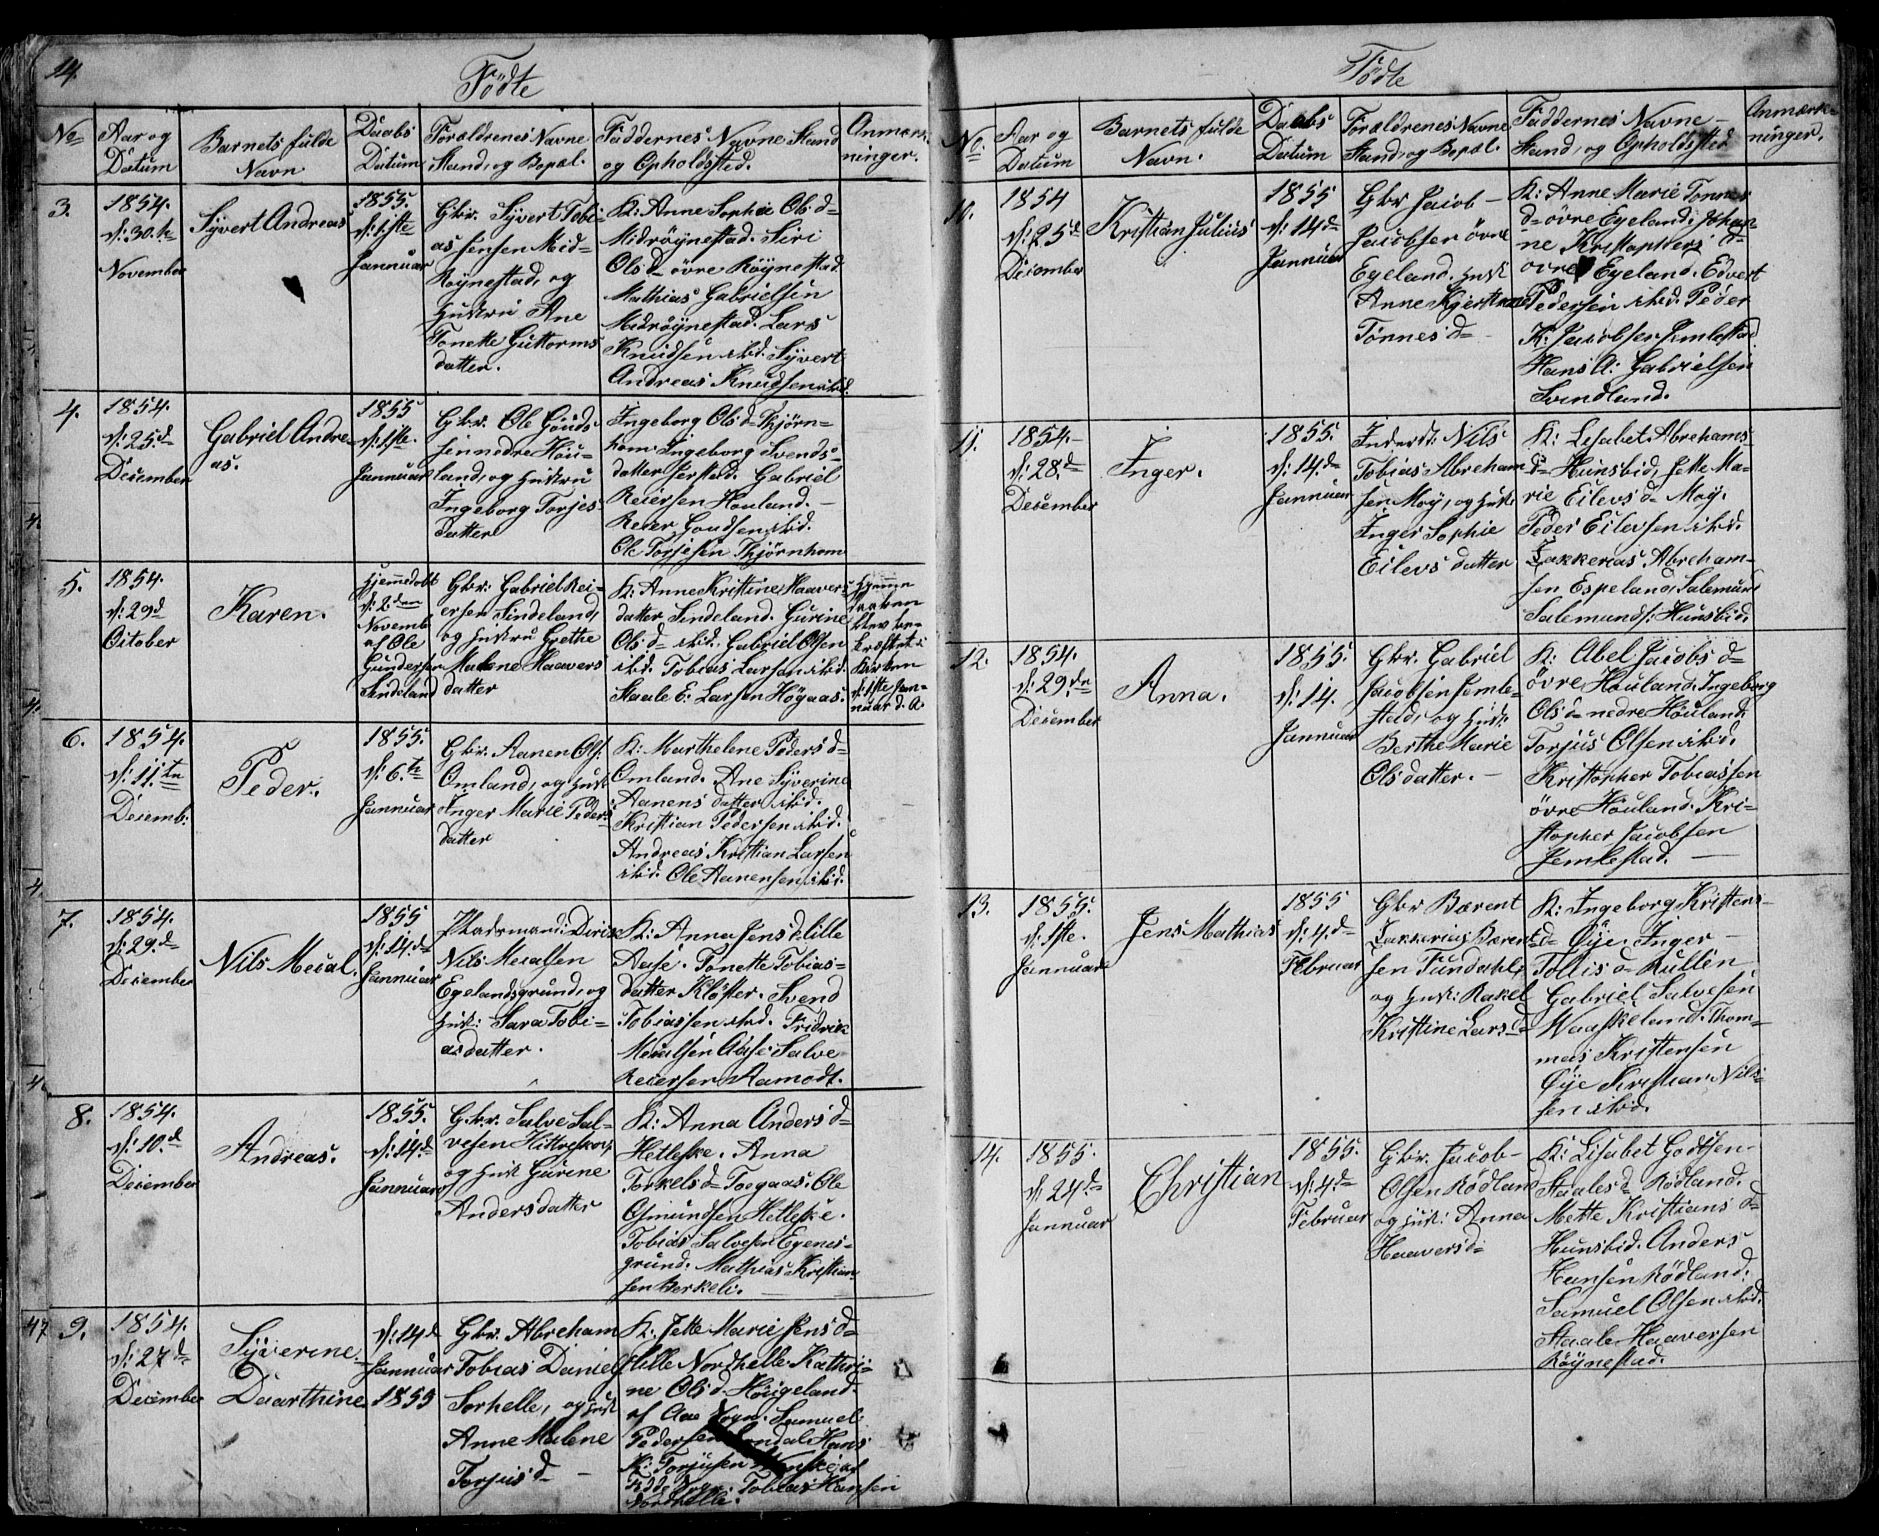 14.
Födte
No
Aar og
Datum
Barnets fulde
Navn
Daabs
Datum
Forældrenes Navne
Stand, og Bopæl.
Faddernes Navne Stand
og Opholdsted.
Anmærk-
ninger.
3.
1854.
d: 30.te
November
Syvert Andreas
1855.
d: 1ste
Jannuar
Gbr. Syvert Tobi-
as Jensen Mid-
Röynestad, og
Hustru Ane
Tonette Guttorms
datter.
K: Anne Sophie Ols d=
Midröynestad. Siri
Ols d= övre Röynestad.
Mathias Gabrielsen
Midröynestad. Lars
Knudsen ibid. Syvert
Andreas Knudsen ibid.
4.
1854.
d: 25.d=
December
Gabriel Andre-
as.
1855
d: 1ste.
Jannuar
Gbr. Ole Gouds-
sen nedre Hou-
land, og Hustru
Ingeborg Torjes
datter
Ingeborg Ols d= Thjörn-
hom Ingeborg Svends-
datter Jerstad. Gabriel
Reiersen Houland. -
Reier Goudsen ibid.
Ole Torjesen Thjörnhom
5.
1854.
d: 29d
October
Karen.
Hjemmedöbt
d: 2den
Novemb.
af Ole
Gundersen
Sindeland
Gbr. Gabriel Rei-
ersen Sindeland,
og Hustru Grethe
Malene Haavers
datter
K: Anne Kristine Haavers
datter Sindeland. Gurine
Ols d= ibid. Gabriel Olsen
ibid. Tobias Larsen ibid.
Staale E. Larsen Högaas.
Hjemme
daaben
blev be-
kræftet i
Kirken
d: 1ste Jan-
nuar d. A.
6.
1854.
d: 11.te
Decemb.
Peder.
1855.
d: 6.te
Jannuar
Gbr. Aanen Ols.
Omland, og Hust.
Inger Marie Peders
datter
K: Marthelene Peders d=
Omland. Ane Syverine
Aanens datter ibid.
Kristian Pedersen ibid.
Andreas Kristian Larsen
ibid. Ole Aanensen ibid.
7.
1854.
d: 29.d=
December
Nils Mecal.
1855
d: 14.d=
Jannuar
Pladsmand: Dirik
Nils Mecalsen
Egelandsgrund, og
Hust: Sara Tobi-
asdatter.
K: Anna Jens d= lille
Aase. Tonette Tobias-
datter Klöster. Svend
Tobiassen ibid. Fridrik
Mecalsen Aase. Salve
Reiersen Aamodt.
8.
1854.
d: 10.d
December
Andreas.
1855.
d: 14.d
Jannuar
Gbr. Salve Sal-
vesen
og Hust Gurine
Andersdatter
K: Anna Anders d=
Helleske. Anna
Torkels d= Toegaas. Ole
Osmundsen Helleske.
Tobias Salvesen Egenes-
grund. Mathias Kristian-
sen Berkeli.
9.
1854.
d: 27d=
December
Syverine
Daarthine
d: 14d
Jannuar
1855
Gbr. Abreham
Tobias Daniels.
Sorhelle, og Hust
Anne Malene
Torjus d= -
K: Jette Marie Jens d=
lille Nordhelle. Kathri-
ne Ols d. Höigeland.
af Aae Sogn. Samuel
Pedersen Londal. Hans
K: Torjusen af
Fede Sogn. Tobias Hansen
Nordhelle.
Födte
No.
Aar og
Datum
Barnets fulde
Navn.
Daabs
Datum
Forældrenes Navne
Stand, og Bopæl.
Faddernes Navne -
Stand, og Opholdsted
Anmærk-
ninger.
10.
1854
d: 25d
December
Kristian Julius
1855
d: 14d=
Jannuar
Gbr Jacob -
Jacobsen övre
Egeland. Hust
Anne Kjerstine
Tönnes d= -
K: Anne Marie Tönnes
d= övre Egeland, Johan-
ne Kristophers d=
övre Egeland. Edvert
Pedersen ibid. Peder
K. Jacobsen Jemlestad.
Hans A: Gabrielsen
Svindland.
11.
1854.-
d: 28d=
December
Inger.
1855.
d: 14d=
Jannuar
Inderst: Nils
Tobias Abreham
sen Moy, og Hust.
Inger Sophie
Eilevs datter
K: Lisabet Abrehams
d= Hunsbid, Jette Ma-
rie Eilevs d= Moy.
Peder Eilevsen ibid.
Zakkerias Abreham-
sen Espeland, Salemund
Salemunds: Hunsbid.
12.
1854.
d: 29.de
December
Anna.
1855.
d: 14.
Jannuar
Gbr. Gabriel
Jacobsen Jemle-
stad, og Hust:
Berthe Marie
Olsdatter. -
K: Abel Jacobs d=
övre Houland. Ingeborg
Ols d= nedre Houland.
Torjus Olsen ibid.
Kristopher Tobiassen
övre Houland. Kri-
stopher Jacobsen
Jemlestad. -
13.
1855.
d: 1ste.
Jannuar
Jens Mathias
1855
d: 4.d=
Februar
Gbr Bærent
Zakkerias Bærent-
sen Fundahl,
og Hust: Rakel
Kristine Lars d=
K: Ingeborg Kristens-
d= Öye. Inger -
Tollis d= Kullen
Gabriel Salvesen
Waaskeland. Thom-
mas Kristensen
Öye Kristian Nils-
sen ibid.
14.
1855.
d: 24d=
Jannuar
Christian
1855.
d: 4.d=
Februar
Gbr. Jacob -
Olsen Rödland
og Hust: Anna
Haavers d=
K: Lisabet Godtsen
Staales d= Rödland.
Mette Kristians d=
Hunsbid. Anders
Hansen Rödland.
Samuel Olsen ibid.
Staale Haaversen
Röynestad.